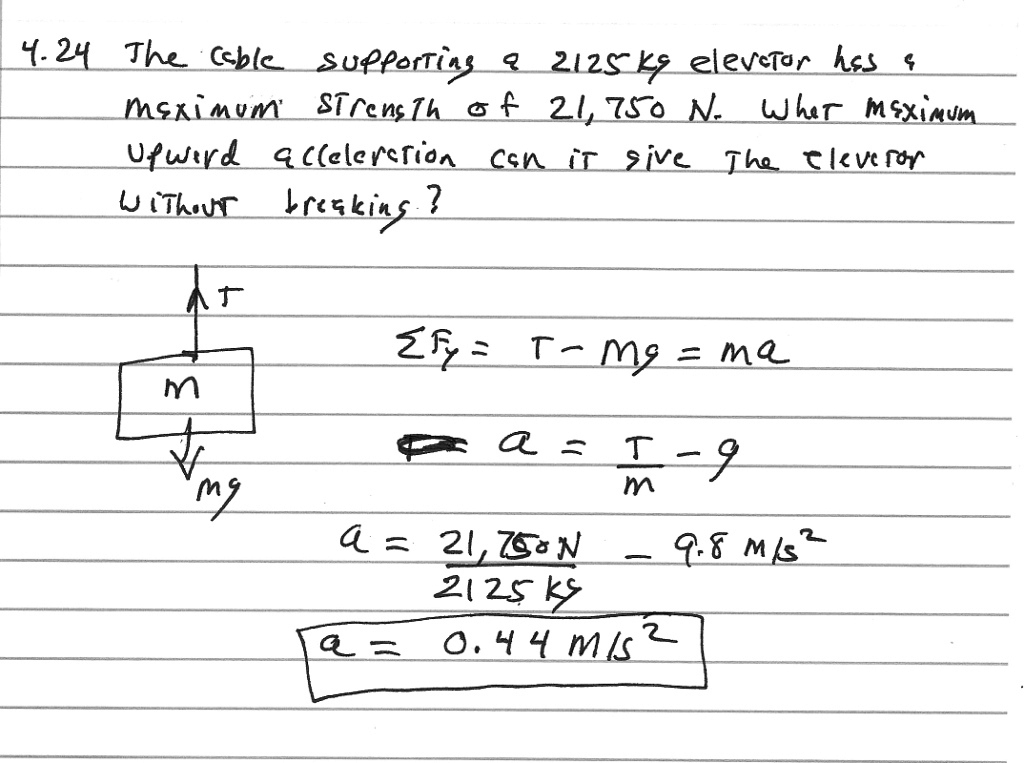 4.24 The cable supporting a 2125 kg elevator has a
maximum strength of 21,750 N. What maximum
upward acceleration can it give the elevator
without breaking?
T
ΣFy = T - mg = ma
m
a = T/m - g
mg
a = 21,750 N / 2125 kg - 9.8 m/s²
a = 0.44 m/s²